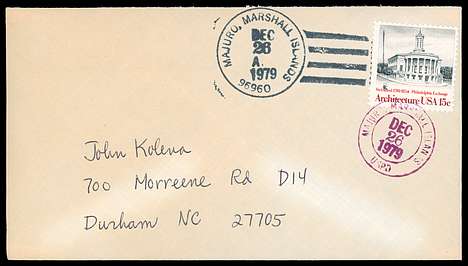 MAJURO, MARSHALL ISLANDS
DEC
26
A.
1979
96960
Philadelphia Exchange
Architecture USA 15c
MAJURO, MARSHALL ISLANDS
DEC
26
1979
USPO
John Kolena
700 Morreene Rd D14
Durham NC 27705